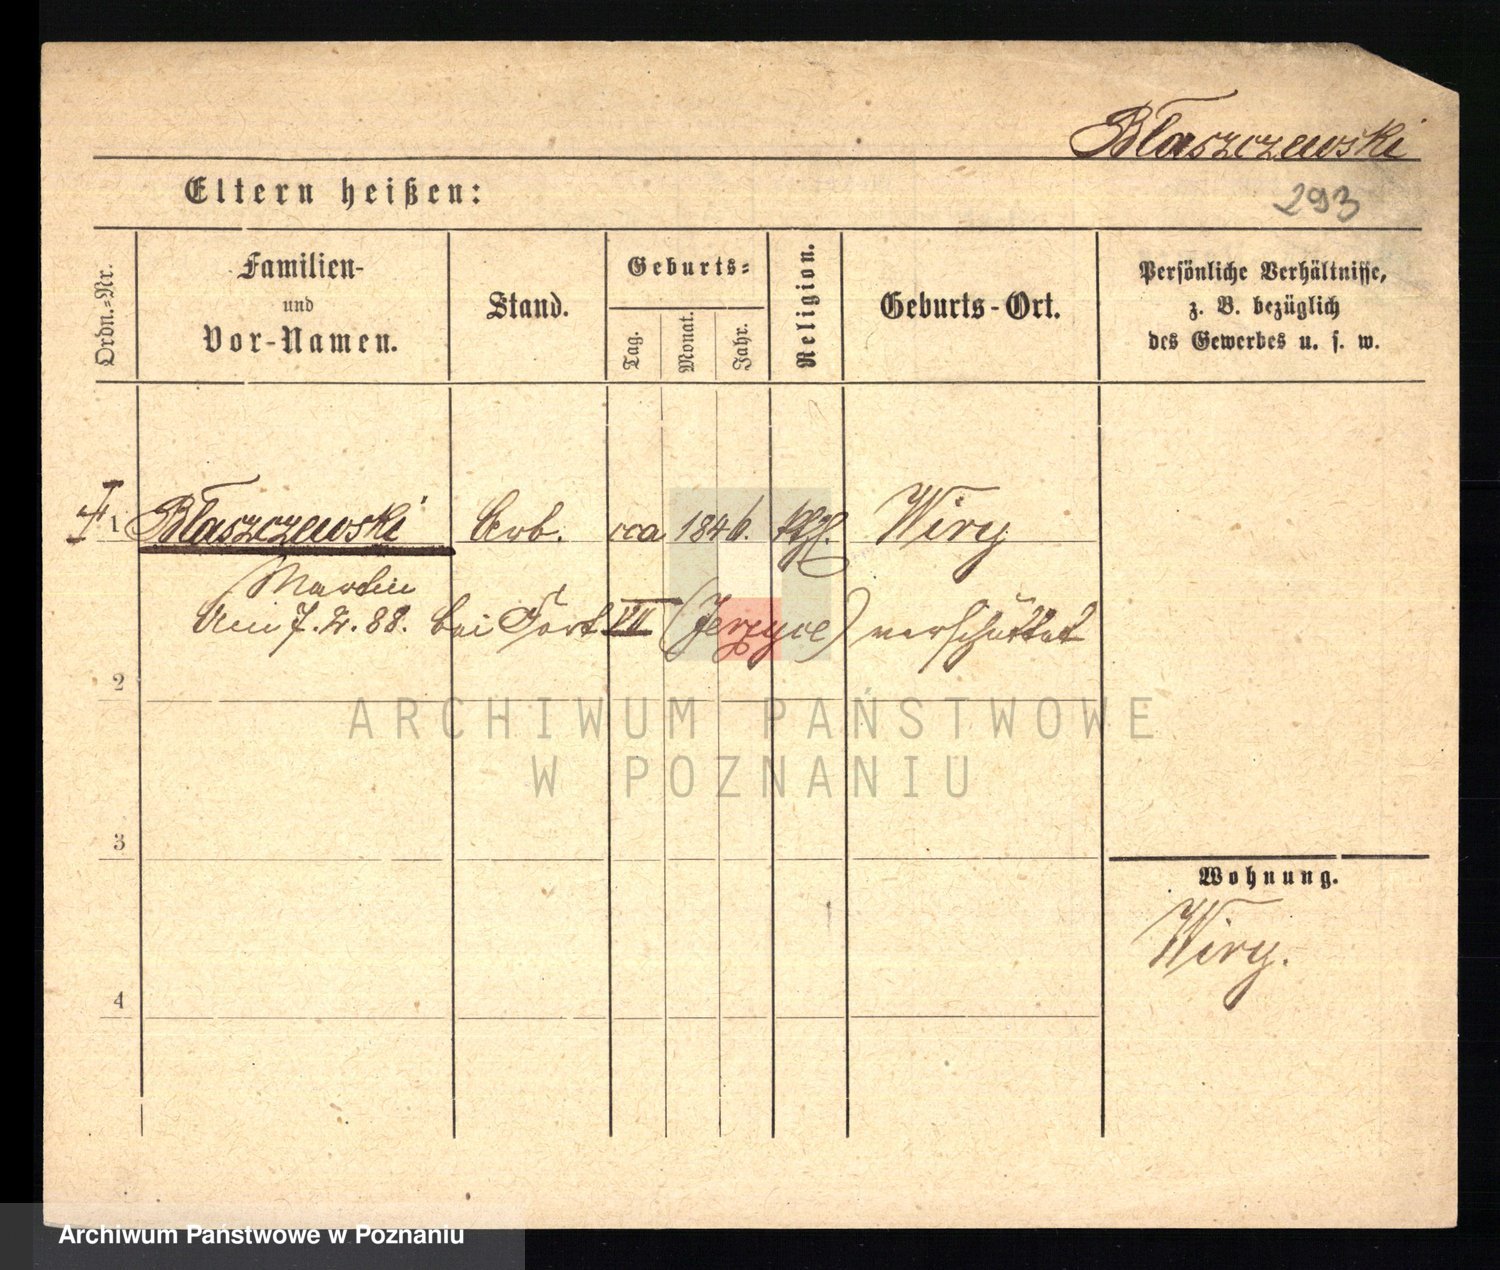 Błaszczewski
293
Eltern heißen:
Ordn.-Nr.
Familien-
und
Vor-Namen.
Stand.
Geburts-
Tag.
Monat.
Jahr.
Religion.
Geburts-Ort.
Persönliche Verhältnisse,
z. B. bezüglich
des Gewerbes u. s. w.
1 Błaszczewski Arb. cca 1846. kthl. Wiry
Martin
Am 7. 2. 88. bei Fort VII (Jerzyce) verschüttet
2
ARCHIWUM PAŃSTWOWE
W POZNANIU
3
Wohnung.
Wiry.
4
Archiwum Państwowe w Poznaniu